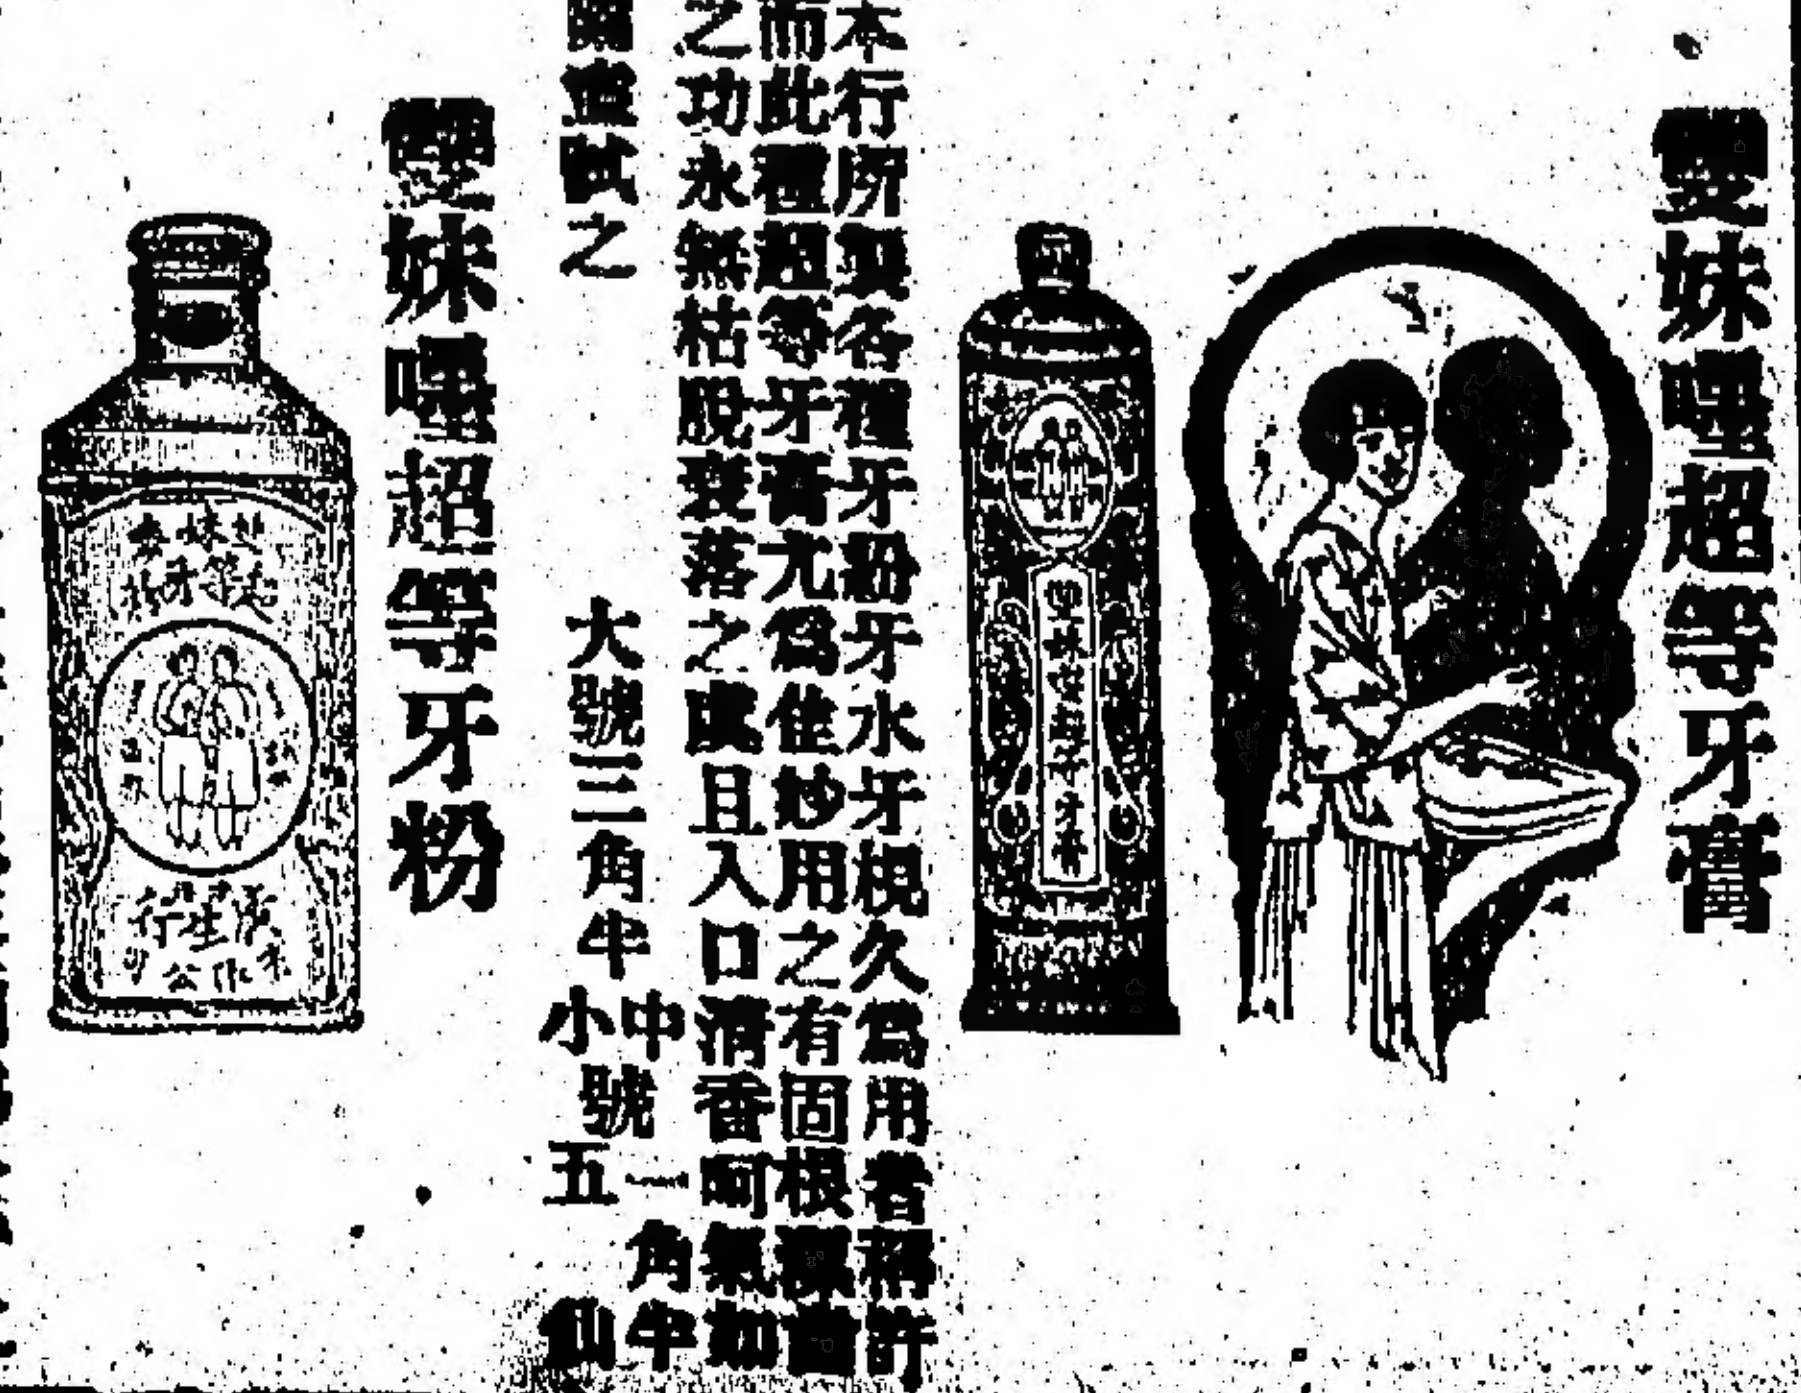 雙妹嘜超等牙膏
雙妹嘜超等牙膏
本行所製各種牙粉牙水牙梘久爲用者稱許
而此種超等牙膏尤爲佳妙用之有固根潔齒
之功永無枯脫衰落之虞且入口清香呵氣如
蘭盍試之
大號三角半
中號一角半
小號五仙
雙妹嘜超等牙粉
雙妹嘜
超等牙粉
廣生行
公司